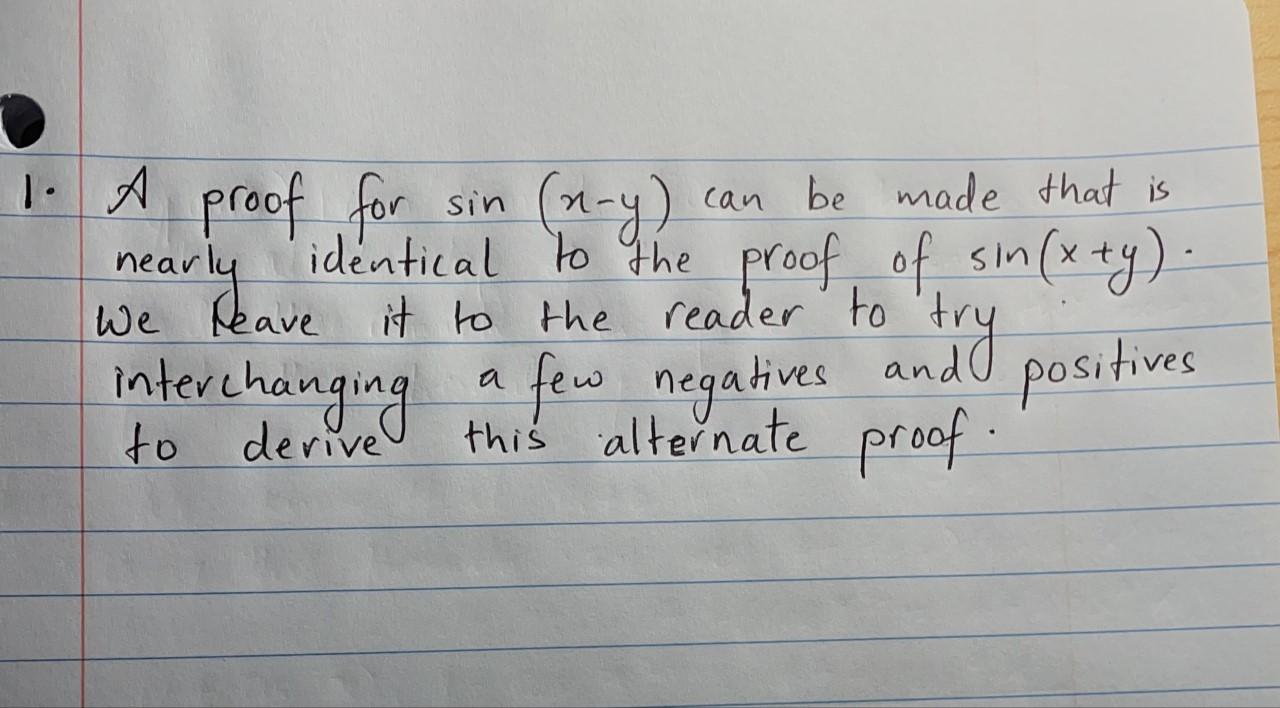 1. A proof for sin (x-y) can be made that is
nearly identical to the proof of sin(x+y).
We leave it to the reader to try
interchanging a few negatives and positives
to derive this alternate proof.